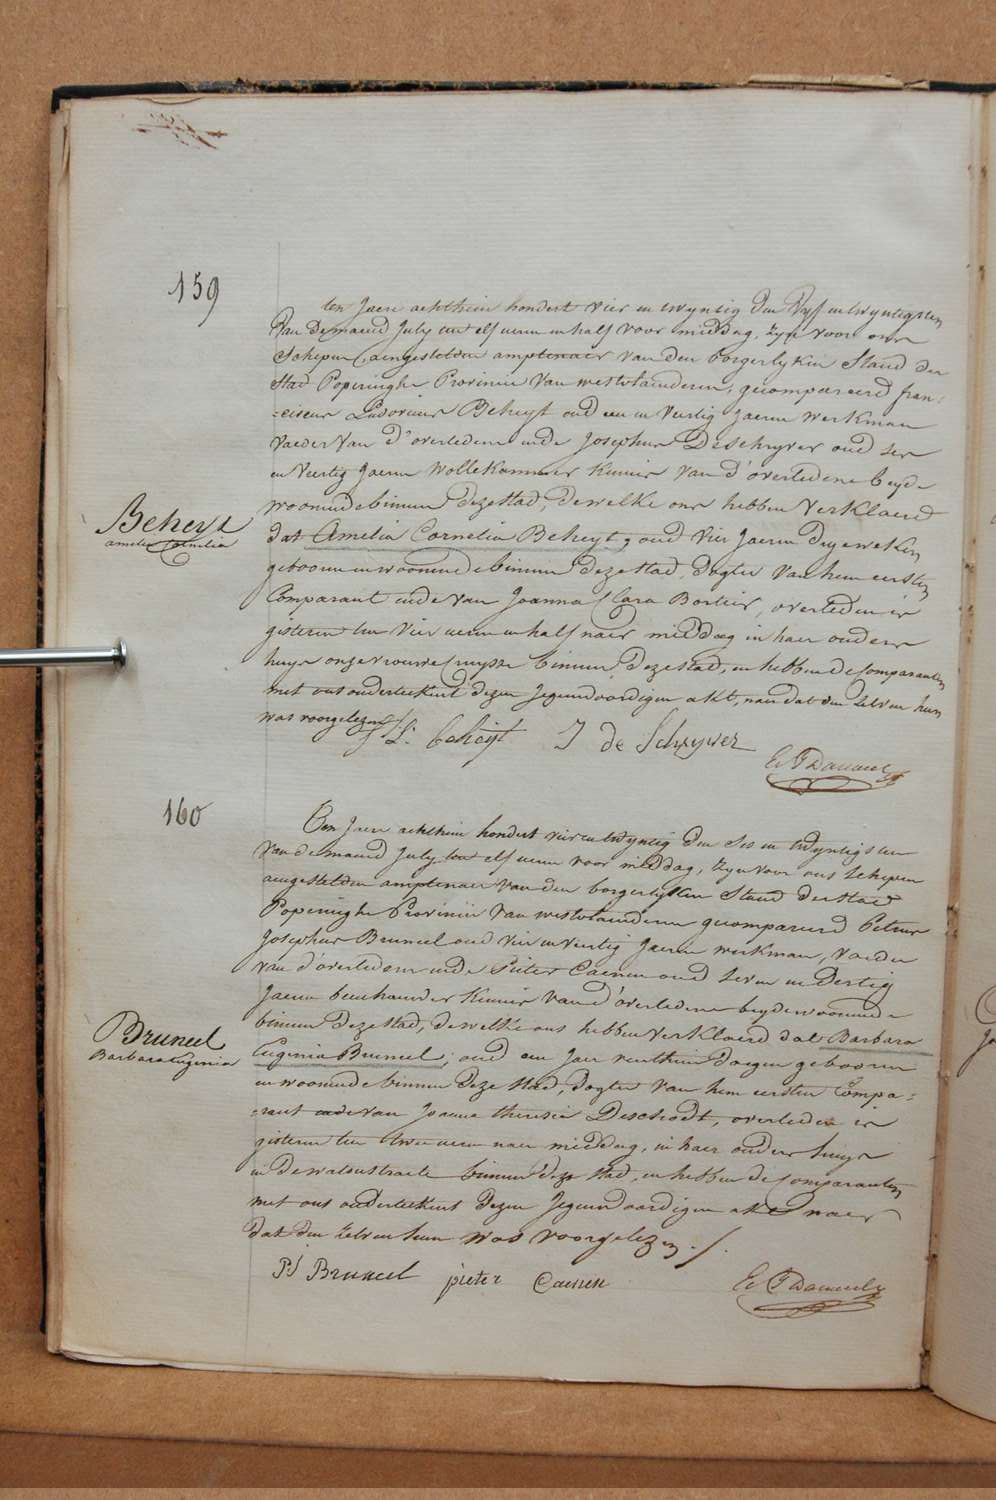 159
ten Jaere achthien hondert vier en twyntig den Vyf en twyntigsten
Van de maend July ten elf uren en half voor middag, zyn voor ons
Schepen, aengestelden amptenaer van den borgerlyken Stand der
Stad Poperinghe Provincie Van westvlaenderen, gecompareerd fran=
=ciscus Ludovicus Beheyt oud een en Veertig Jaeren Werkman
Vaeder Van d'overledene ende Josephus Deschryver oud ses
en Veertig Jaeren Wollekammer kennis Van d'overledene beyde
woonende binnen deze stad, dewelke ons hebben Verklaerd
dat Amelia Cornelia Beheyt, oud Vier Jaeren Dry weken
Beheyt
amelia Cornelia
geboren en woonende binnen deze stad, dogter Van hem eersten
Comparant ende van Joanna Clara Bortier, overleden is
gisteren ten Vier uren en half naer middag in haer ouders
huys onze vrouwe binnen deze stad, en hebben de Comparanten
met ons onderteekent dezen Jegenwoordigen akt, naer dat den zelven hun
was voorgelezen
f L. beheyt J de Schryver
160
Ten Jaere achthien hondert vier en twyntig den Ses en twyntigsten
Van de maend July ten elf uren voor middag, zyn voor ons Schepen
aengestelden amptenaer van den borgerlyken Stand der stad
Poperinghe Provincie Van westvlaenderen gecompareerd Petrus
Josephus Bruneel oud vier en veertig Jaeren werkman, Vaeder
van d'overledene ende Pieter Caenen oud Seven en Dertig
Jaeren kennis van d'overledene beyde woonende
binnen deze stad, dewelke ons hebben verklaerd dat Barbara
Bruneel
Barbara Eugenia
Eugenia Bruneel, oud een Jaer veerthien daegen geboren
en woonende binnen deze stad, dogter Van hem eersten Compa=
=rant ende van Joanna theresia Deschodt, overleden is
gisteren ten twee uren naer middag, in haer ouders huys
in de straete binnen deze stad, en hebben de Comparanten
met ons onderteekent dezen Jegenwoordigen akt naer
dat den zelven hun was voorgelezen.
PJ Bruneel pieter Caenen